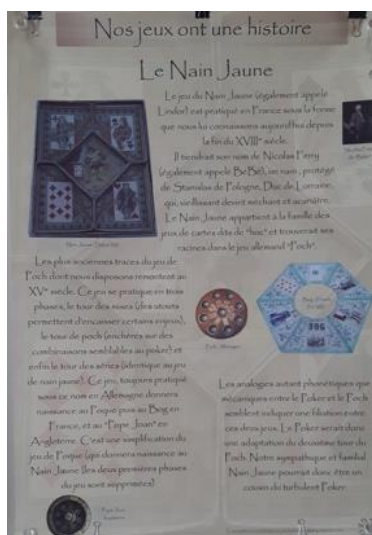 Nos jeux ont une histoire
Le Nain Jaune
Le jeu du Nain Jaune (également appelé
Lindor) est pratiqué en France sous la forme
que nous lui connaissons aujourd'hui depuis
la fin du XVIIIᵉ siècle.
Il tiendrait son nom de Nicolas Ferry
(également appelé BéBé), un nain, protégé
de Stanislas de Pologne, Duc de Lorraine,
qui, vieillissant devient méchant et acariâtre.
Le Nain Jaune appartient à la famille des
jeux de cartes dits de "hoc" et trouverait ses
racines dans le jeu allemand "Poch".
Les plus anciennes traces du jeu de
Poch dont nous disposons remontent au
XVᵉ siècle. Ce jeu se pratique en trois
phases, le tour des mises (des atouts
permettent d'encaisser certains enjeux),
le tour de poch (enchères sur des
combinaisons semblables au poker) et
enfin le tour des séries (identique au jeu
de nain jaune). Ce jeu, toujours pratiqué
sous ce nom en Allemagne donnera
naissance au Poque puis au Bog en
France, et au "Pope Joan" en
Angleterre. C'est une simplification du
jeu de Poque (qui donnera naissance au
Nain Jaune (les deux premières phases
du jeu sont supprimées)
Les analogies autant phonétiques que
mécaniques entre le Poker et le Poch
semblent indiquer une filiation entre
ces deux jeux. Le Poker serait donc
une adaptation du deuxième tour du
Poch. Notre sympathique et familial
Nain Jaune pourrait donc être un
cousin du turbulent Poker.